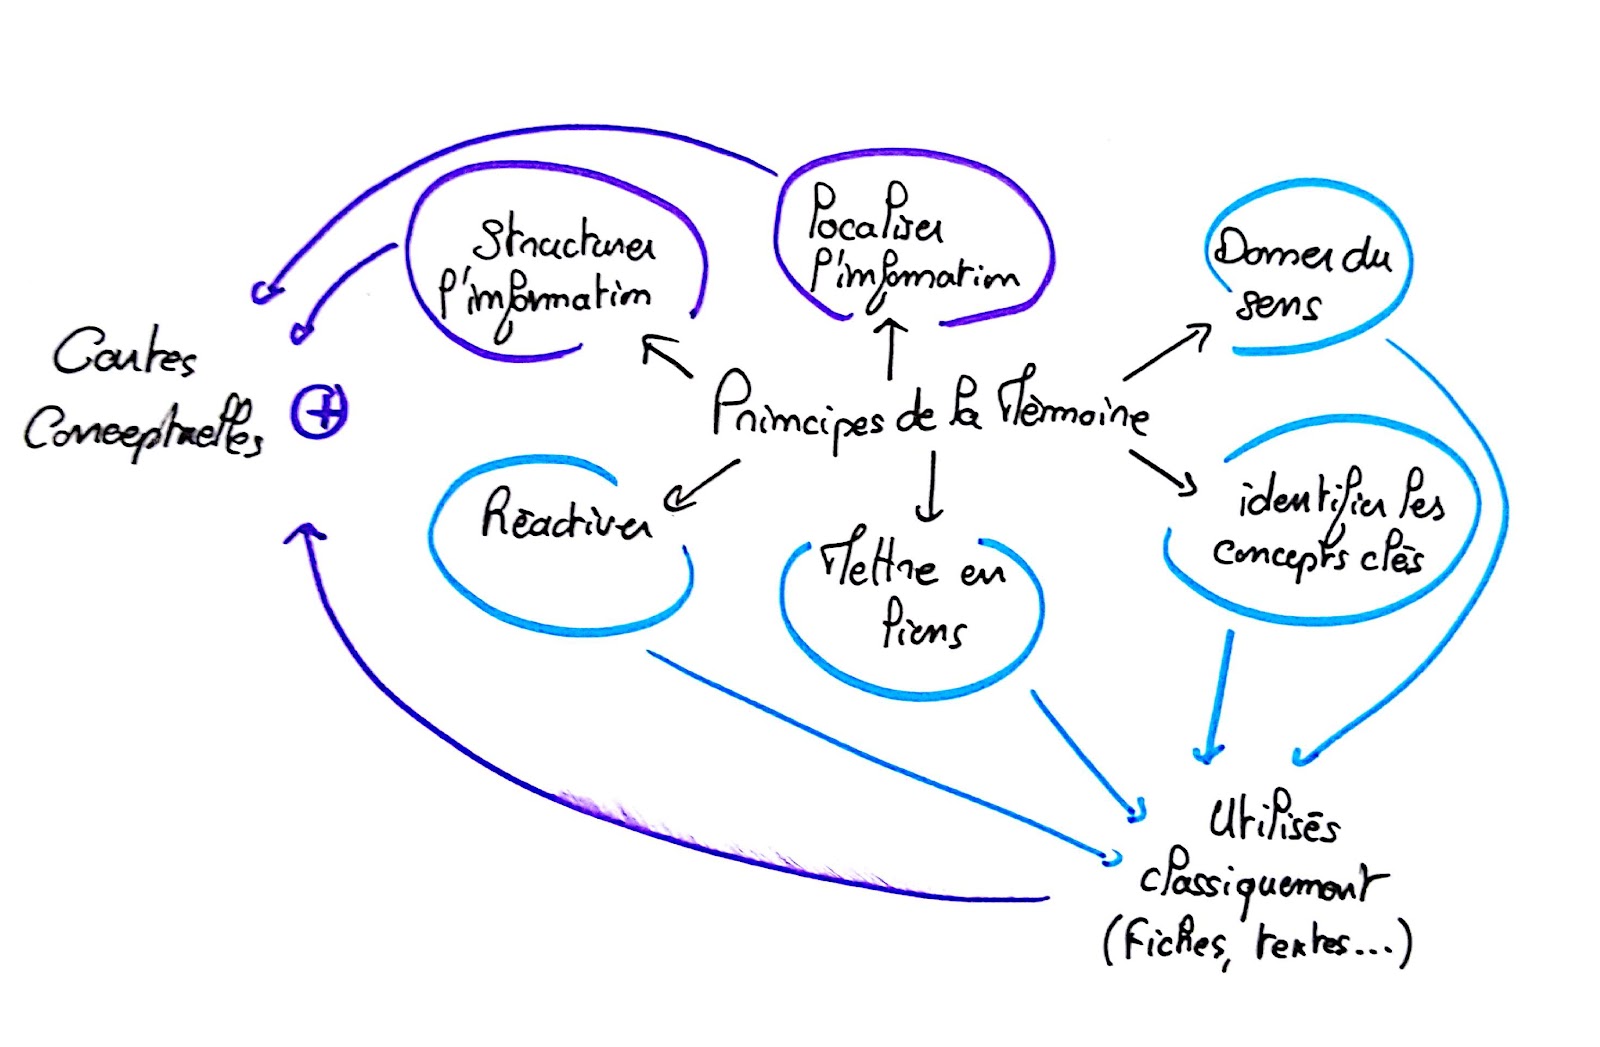 Structurer
l'information
localiser
l'information
Donner du
sens
Cartes
Conceptuelles
+
Principes de la Mémoire
Réactiver
Mettre en
liens
identifier les
concepts clés
Utilisés
classiquement
(fiches, textes...)